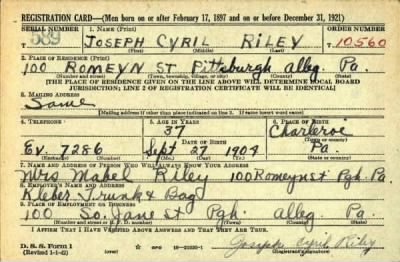 REGISTRATION CARD—(Men born on or after February 17, 1897 and on or before December 31, 1921)
SERIAL NUMBER 1. NAME (Print) ORDER NUMBER
589 JOSEPH CYRIL RILEY T 10,560
(First) (Middle) (Last)
2. PLACE OF RESIDENCE (Print)
100 ROMEYN ST Pittsburgh alleg. Pa.
(Number and street) (Town, township, village, or city) (County) (State)
[THE PLACE OF RESIDENCE GIVEN ON THE LINE ABOVE WILL DETERMINE LOCAL BOARD
JURISDICTION; LINE 2 OF REGISTRATION CERTIFICATE WILL BE IDENTICAL]
3. MAILING ADDRESS
Same
[Mailing address if other than place indicated on line 2. If same insert word same]
4. TELEPHONE 5. AGE IN YEARS 6. PLACE OF BIRTH
37 Charleroi
DATE OF BIRTH (Town or county)
Ev. 7286 Sept 27 1904 Pa.
(Exchange) (Number) (Mo.) (Day) (Yr.) (State or country)
7. NAME AND ADDRESS OF PERSON WHO WILL ALWAYS KNOW YOUR ADDRESS
Mrs Mabel Riley 100 Romeyn St Pgh. Pa.
8. EMPLOYER'S NAME AND ADDRESS
Kleber Trunk & Bag
9. PLACE OF EMPLOYMENT OR BUSINESS
100 So. Jane St Pgh. alleg. Pa.
(Number and street or R. F. D. number) (Town) (County) (State)
I AFFIRM THAT I HAVE VERIFIED ABOVE ANSWERS AND THAT THEY ARE TRUE.
D. S. S. Form 1
(Revised 1-1-42) GPO 16—21630-1 Joseph Cyril Riley
(Registrant's signature)